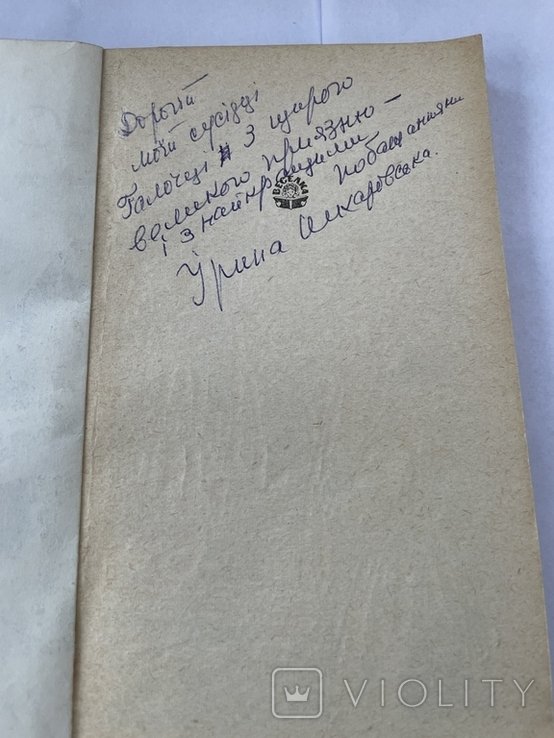 Дорогій
моїй сусідці
Галочці з щирого
великого приязню –
і з найкращими побажаннями
ВЕСЕЛКА
Ірина
VIOLITY